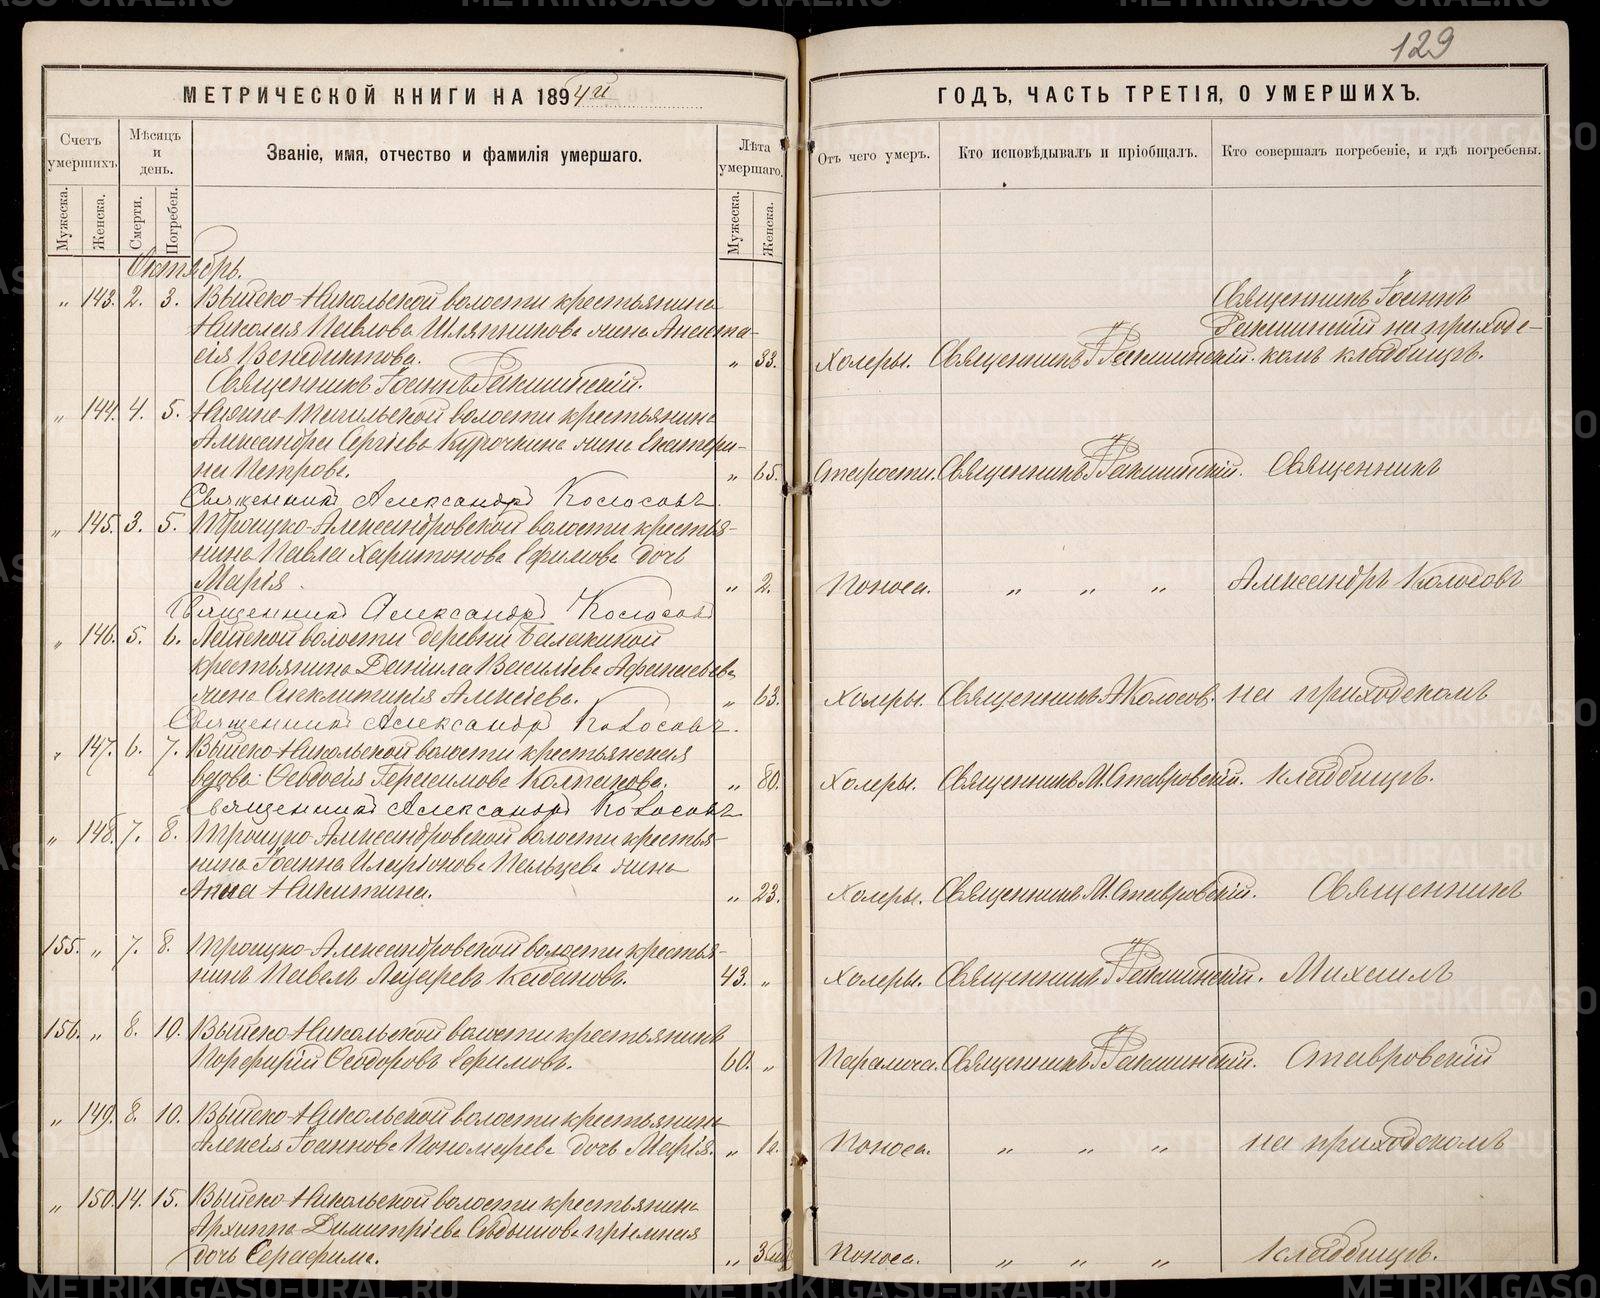 129
МЕТРИЧЕСКОЙ КНИГИ НА 1894й
ГОДЪ, ЧАСТЬ ТРЕТІЯ, О УМЕРШИХЪ.
Счетъ умершихъ.
Мужеска.
Женска.
Мѣсяцъ и день.
Смерти.
Погребен.
Званіе, имя, отчество и фамилія умершаго.
Лѣта умершаго.
Мужеска.
Женска.
Отъ чего умеръ.
Кто исповѣдывалъ и пріобщалъ.
Кто совершалъ погребеніе, и гдѣ погребены.
Октябрь.
" 143. 2. 3. Выйско-Никольской волости крестьянина
Николая Павлова Шляпникова жена Анаста-
сія Венедиктова. " 33. Холеры. Священникъ І Ракшинскій.
Священникъ Іоаннъ Ракшинскій на приходс-
комъ кладбищѣ.
Священникъ Іоаннъ Ракшинскій.
" 144. 4. 5. Нижне-Тагильской волости крестьянина
Александра Сергѣева Курочкина жена Екатери-
на Петрова. " 65. Старости. Священникъ І Ракшинскій. Священникъ
Священникъ Александръ Колосовъ.
" 145. 3. 5. Троицко-Александровской волости крестья-
нина Павла Харитонова Ефимова дочь
Марія. " 2. Поноса. " " " Александръ Колосовъ
Священникъ Александръ Колосовъ
" 146. 5. 6. Лайской волости деревни Балакиной
крестьянина Даніила Васильева Афанасьева
жена Синклитикія Алексѣева. " 63. Холеры. Священникъ А Колосов. на приходскомъ
Священникъ Александръ Колосовъ.
" 147. 6. 7. Выйско-Никольской волости крестьянская
вдова Ѳеодосія Герасимова Колпакова. " 80. Холеры. Священникъ М. Ставровскій. кладбищѣ.
Священникъ Александръ Колосовъ
" 148. 7. 8. Троицко-Александровской волости крестья-
нина Іоанна Иларіонова Пальцева жена
Анна Никитина. " 23. Холеры. Священникъ М. Ставровскій. Священникъ
155. " 7. 8. Троицко-Александровской волости крестья-
нинъ Павелъ Лазаревъ Кабановъ. 43. " Холеры. Священникъ І Ракшинскій. Михаилъ
156. " 8. 10. Выйско-Никольской волости крестьянинъ
Порфирій Ѳеодоровъ Ефимовъ. 60. " Паралича. Священникъ І Ракшинскій. Ставровскій
" 149. 8. 10. Выйско-Никольской волости крестьянина
Алексія Іоаннова Пономарева дочь Марія. " Поноса. " " " на приходскомъ
" 150. 14. 15. Выйско-Никольской волости крестьянина
Архиппа Димитріева пріемная
дочь Серафима. " Поноса. " " " кладбищѣ.
METRIKI.GASO-URAL.RU